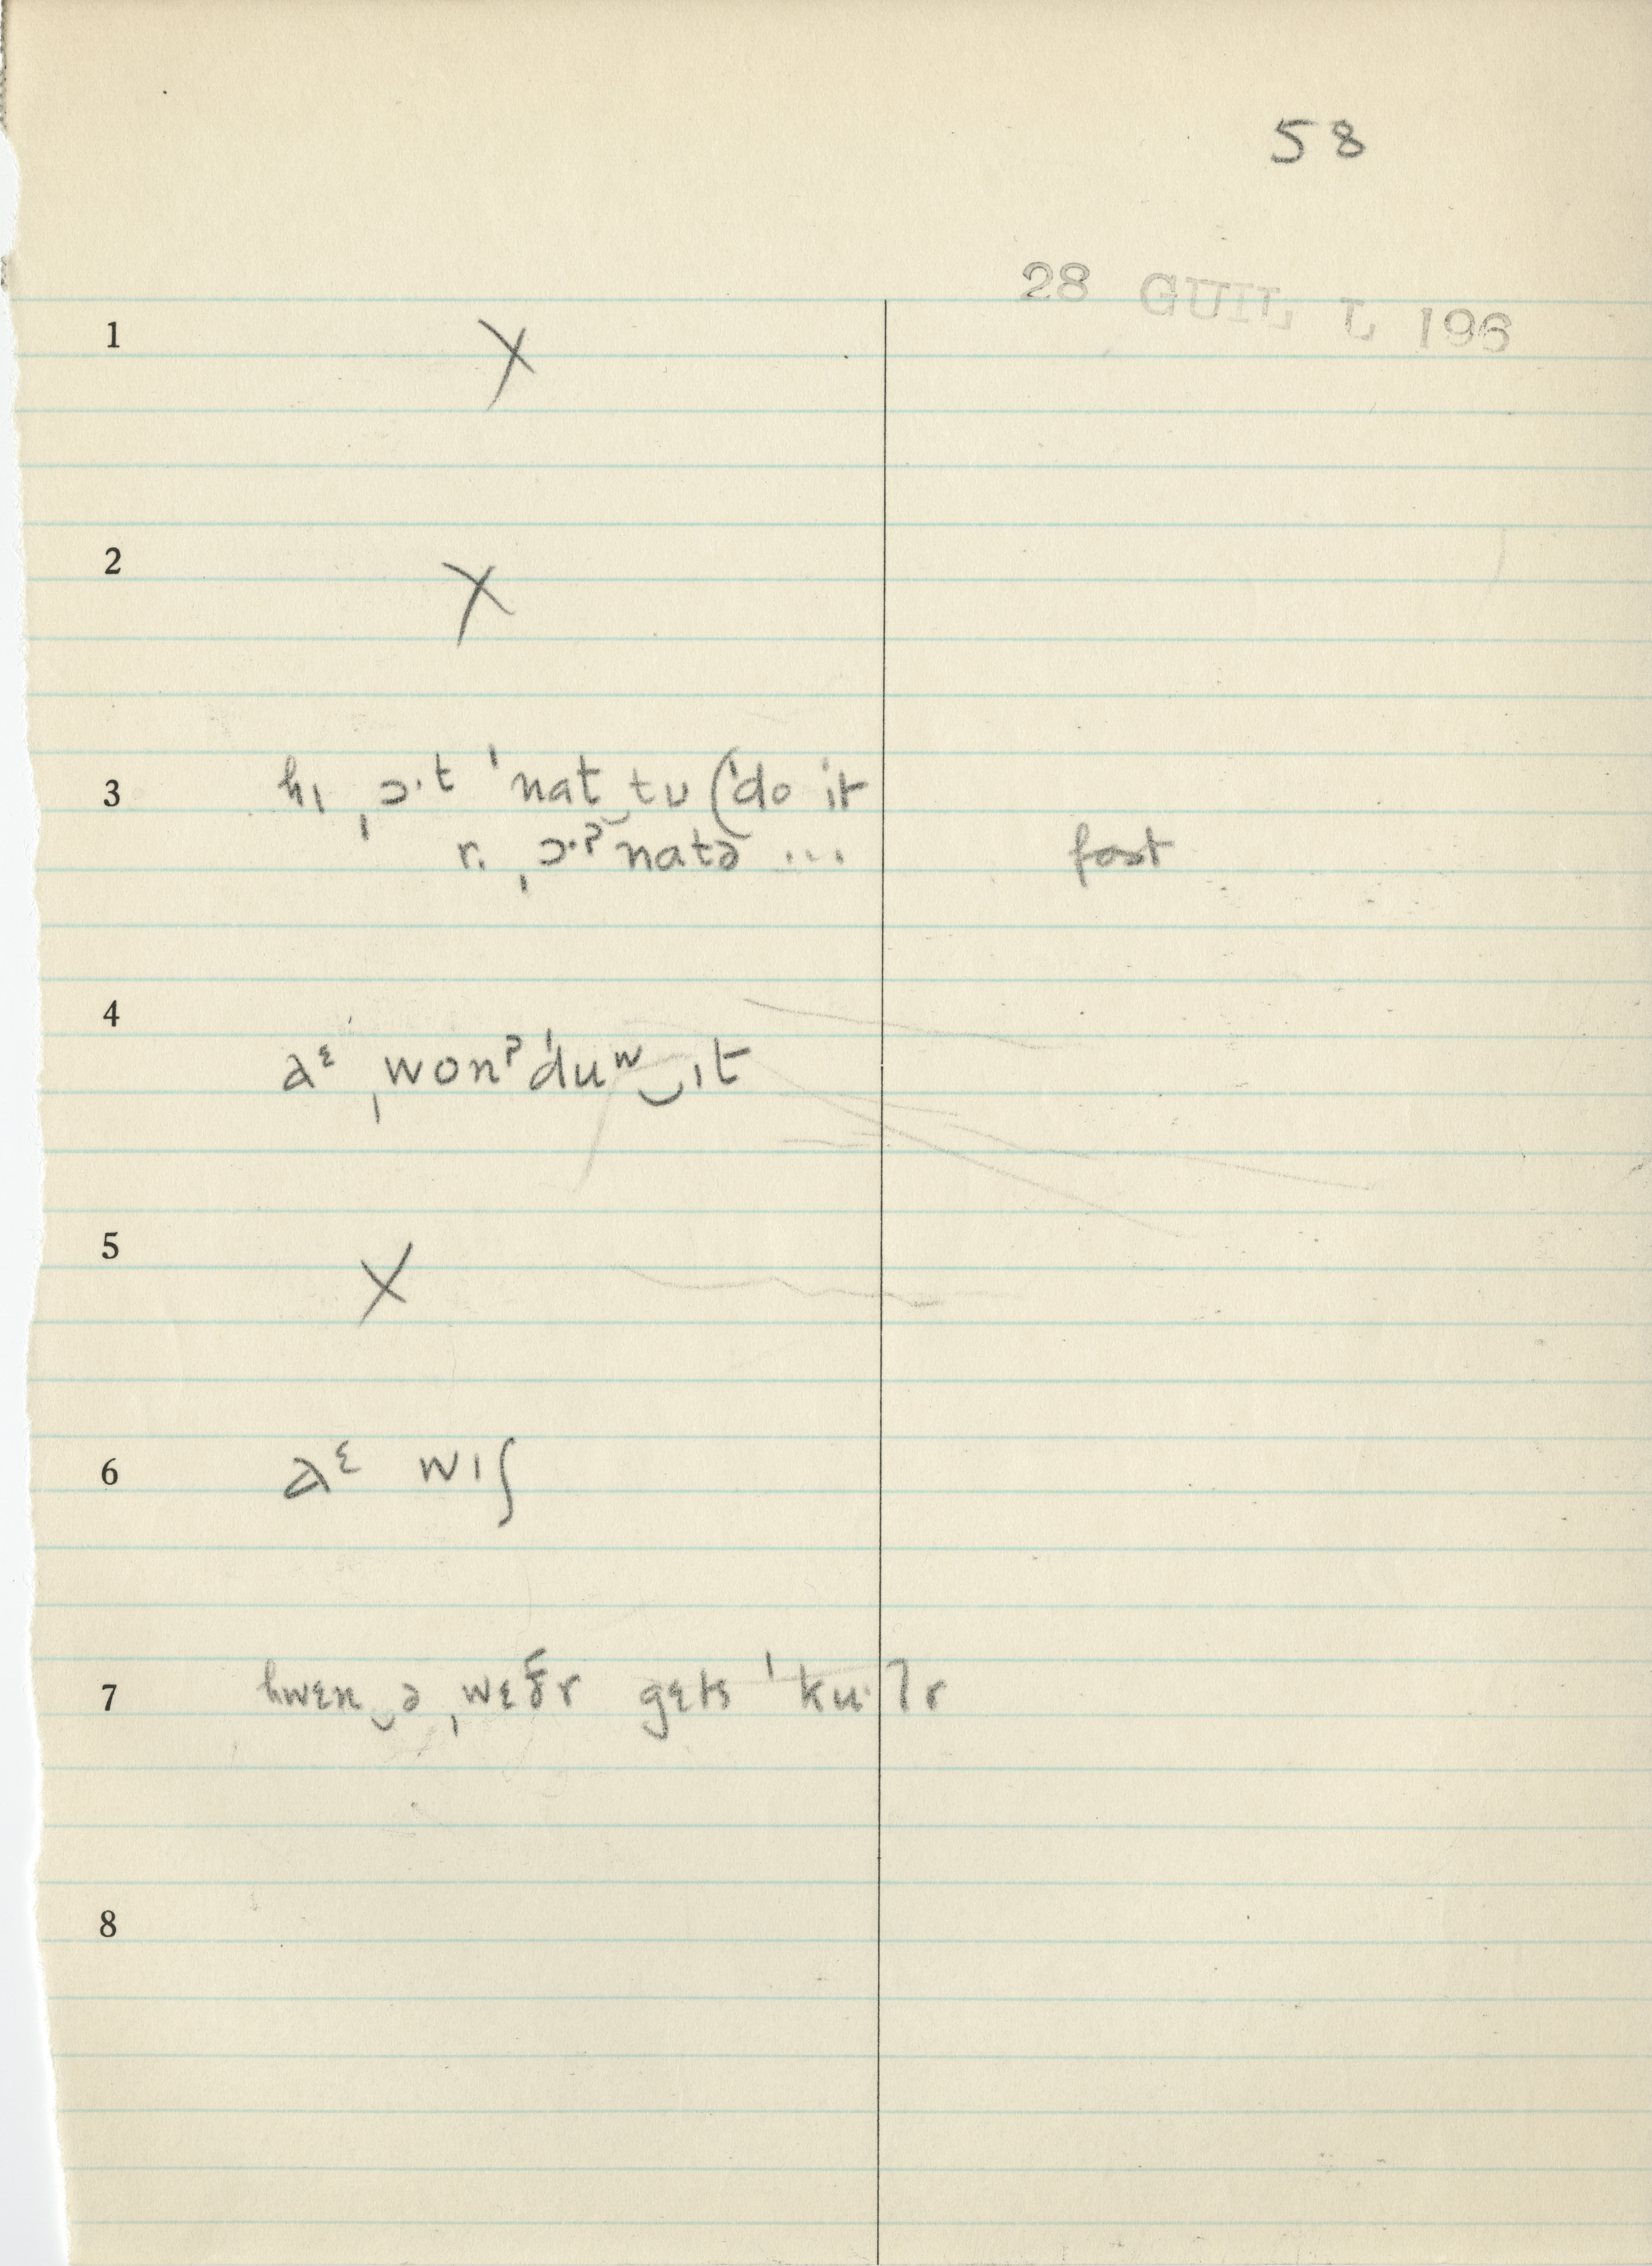 58
28 GUIL L 196
1 X
2 X
3 hɪ ˌɔ·t ˈnat‿tu (ˈdo it
r. ˌɔ·ˀnatə ... fast
4 aᵋ ˌwonˀˈduʷ‿ɪt
5 X
6 aᵋ wɪʃ
7 hwɛn‿ə ˌwɛðr gɛts ˈku·lr
8